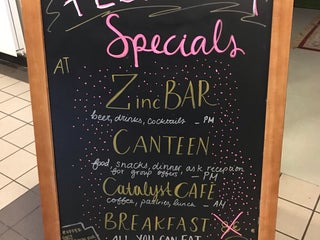 Specials
AT
Zinc BAR
beer, drinks, cocktails _ PM
CANTEEN
food, snacks, dinner ask reception
for group offers - PM
Catalyst CAFÉ
coffee, pastries, lunch - AM
BREAKFAST
ALL YOU CAN EAT